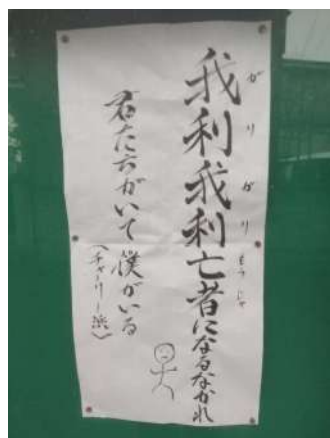 我利我利亡者になるなかれ
がりがりもうじゃ
君たちがいて僕がいる
(チャーリー浜)